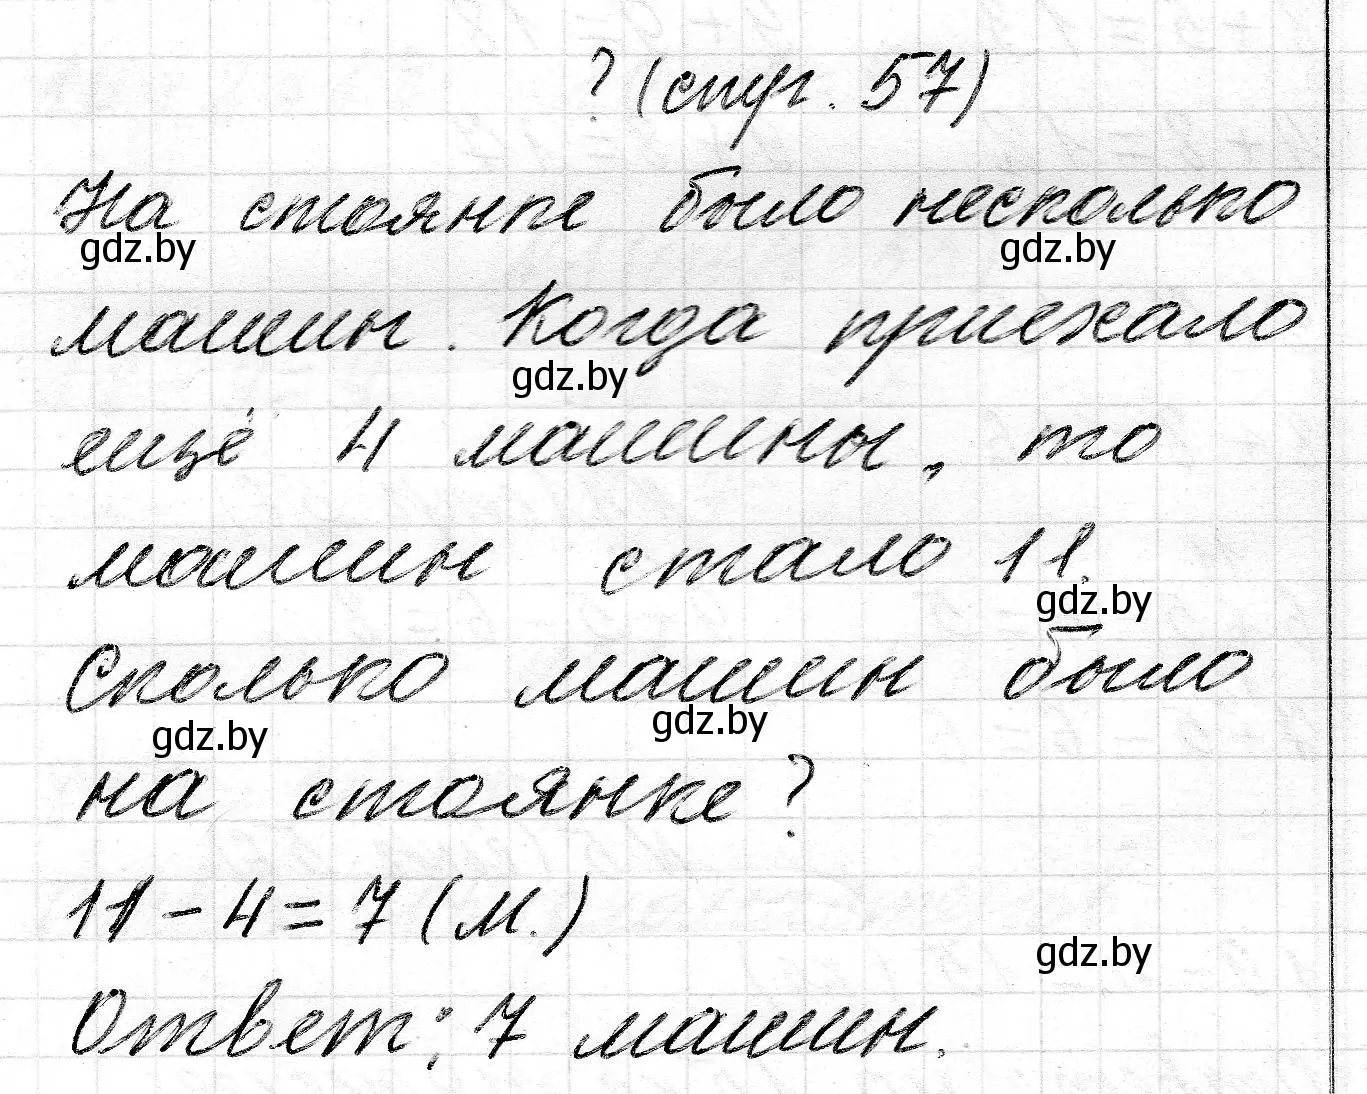 ? (стр. 57)
На стоянке было несколько
gdz.by gdz.by
машин. Когда приехало
gdz.by
ещё 4 машины, то
машин стало 11.
gdz.by
Сколько машин было
gdz.by gdz.by
на стоянке?
11 - 4 = 7 (м.)
gdz.by
Ответ: 7 машин.